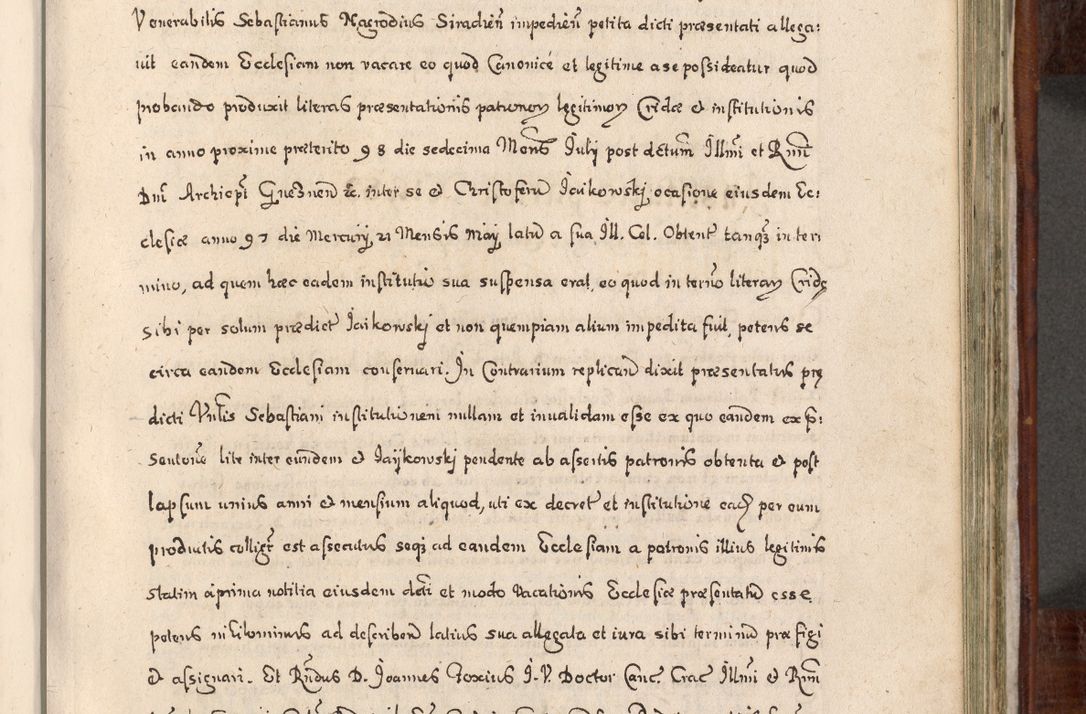 Venerabilis Sebastianus Nagrodius Siradień impedień petita dicti præsentati allega:
vit eandem Ecclesiam non vacare eo quod Canonicé et legitime a se possideatur quod
probando produxit literas præsentationis patronoꝝ legitimoꝝ Cridæ et institutionis
in anno proxime præterito 98 die sedecima Mens Julij post detum Illmi et Rmi
Dni Archiepi Gneznen &c. inter se et Christoferu Jaikowskj ocasione eiusdem Ec:
clesiæ anno 97 die Mercurij 21 Mensis Maij latu a sua Ill. Cel. Obtent tanqȝ in ter:
mino, ad quem hæc eadem institutio sua suspensa erat, eo quod in terno literaꝝ Cridę
sibi per solum prædict Jaikowskj et non quempiam alium impedita fuit, petens se
circa eandem Ecclesiam conservari. In Contrarium replican dixit præsentatus prę
dicti Vnlis Sebastiani institutionem nullam et invalidam esse ex quo eandem ex P:
sentone lite inter eundem et Jaijkowskj pendente ab assertis patronis obtenta et post
lapsum unius anni et mensium aliquod, uti ex decret et institutione ead per eum
productis colligr est assecutus seqȝ ad eandem Ecclesiam a patronis illius legitimis
statim a prima notitia eiusdem dcti et modo vacationis Ecclesiæ præsentatu esse
petens nihilominus ad describen latius sua allegata et iura sibi terminu præfigi
et assignari. Et Rndus D. Joannes Foxius I. V. Doctor Canc. Crac Illmi et Rmi